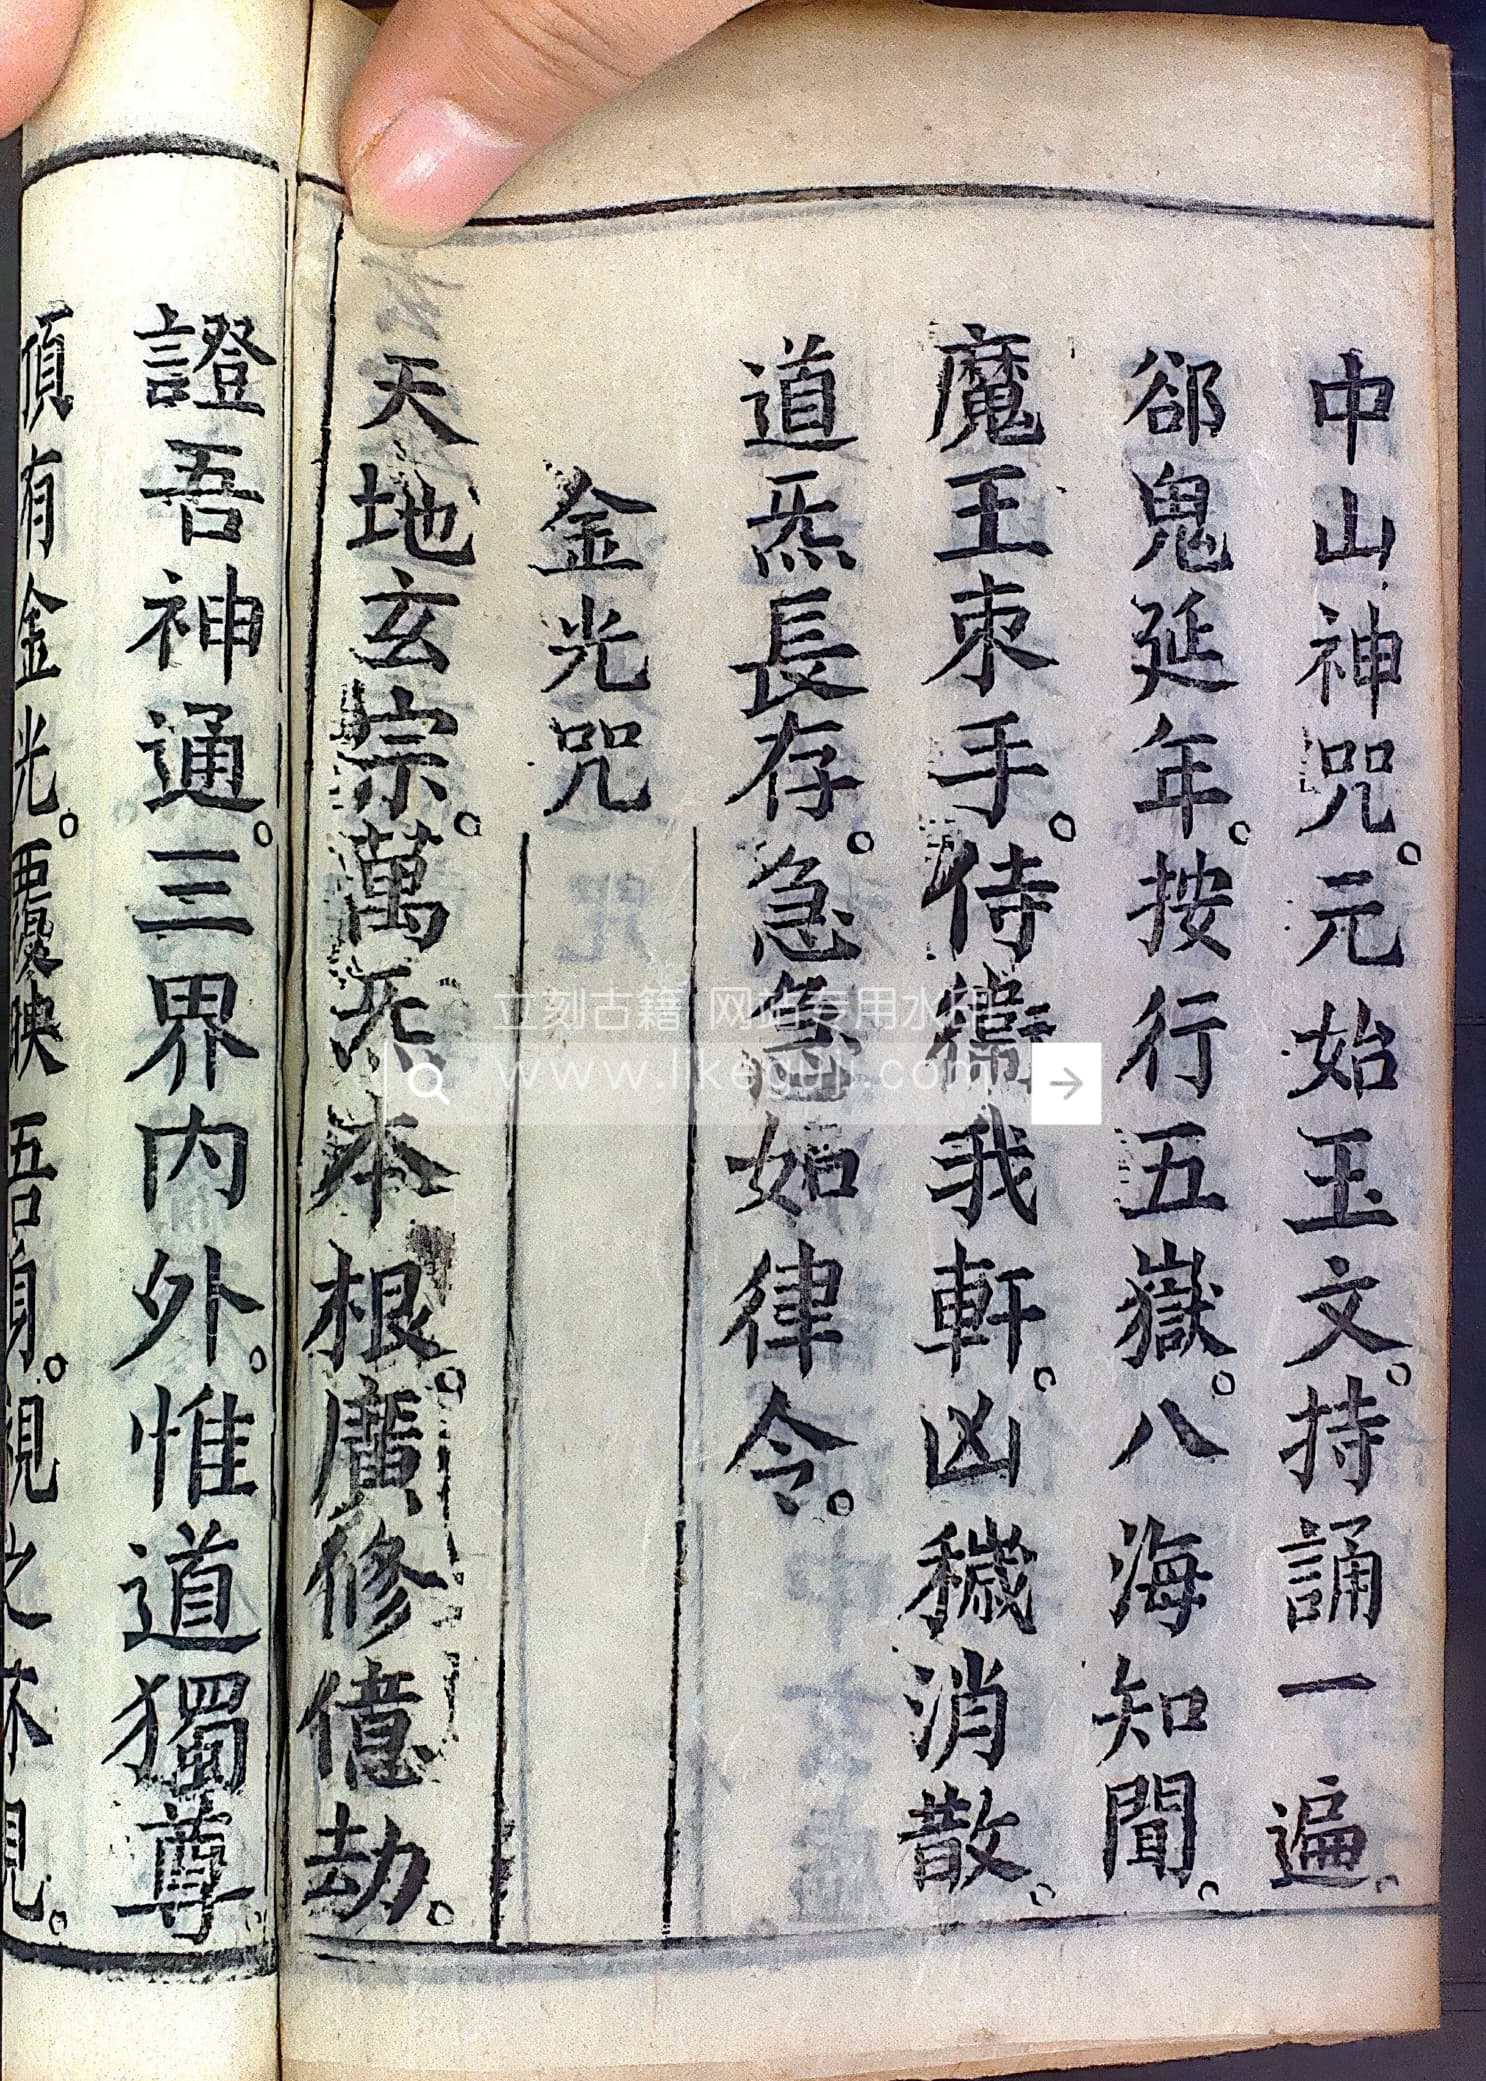 中山神咒。元始玉文。持誦一遍。
郤鬼延年。按行五嶽。八海知聞。
魔王朿手。侍衞我軒。凶穢消散。
道炁長存。急急如律令。
金光咒
天地玄宗。萬炁本根。廣修億劫。
證吾神通。三界内外。惟道獨尊。
頂有金光。覆映吾身。視之不見。
立刻古籍 网站专用水印
www.likeguji.com